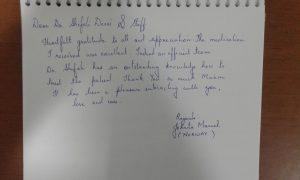 Dear Dr Shefali Desai & Staff
Heartfelt gratitude to all and appreciation. The medication
I received was excellent. Indeed an efficient team
Dr. Shefali has an outstanding knowledge how to
treat the patient. Thank You so much Madam
It has been a pleasure interacting with you,
love and
Regards
Manuel
(NORWAY)